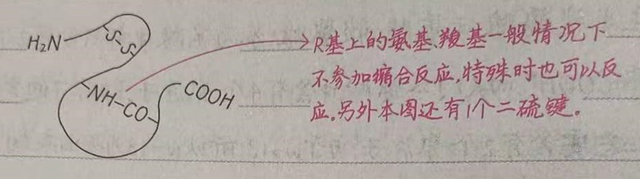 H₂N
S-S
NH-CO
COOH
R基上的氨基、羧基一般情况下
不参加缩合反应,特殊时也可以反
应。另外本图还有1个二硫键。